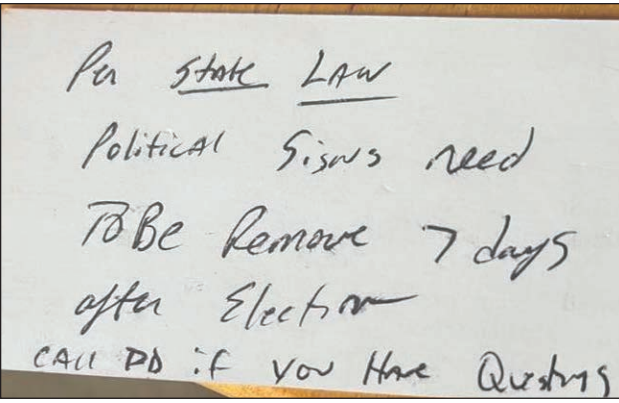 Per State LAW
Political Signs need
To Be Remove 7 days
after Election
CAll PD if You Have Questions